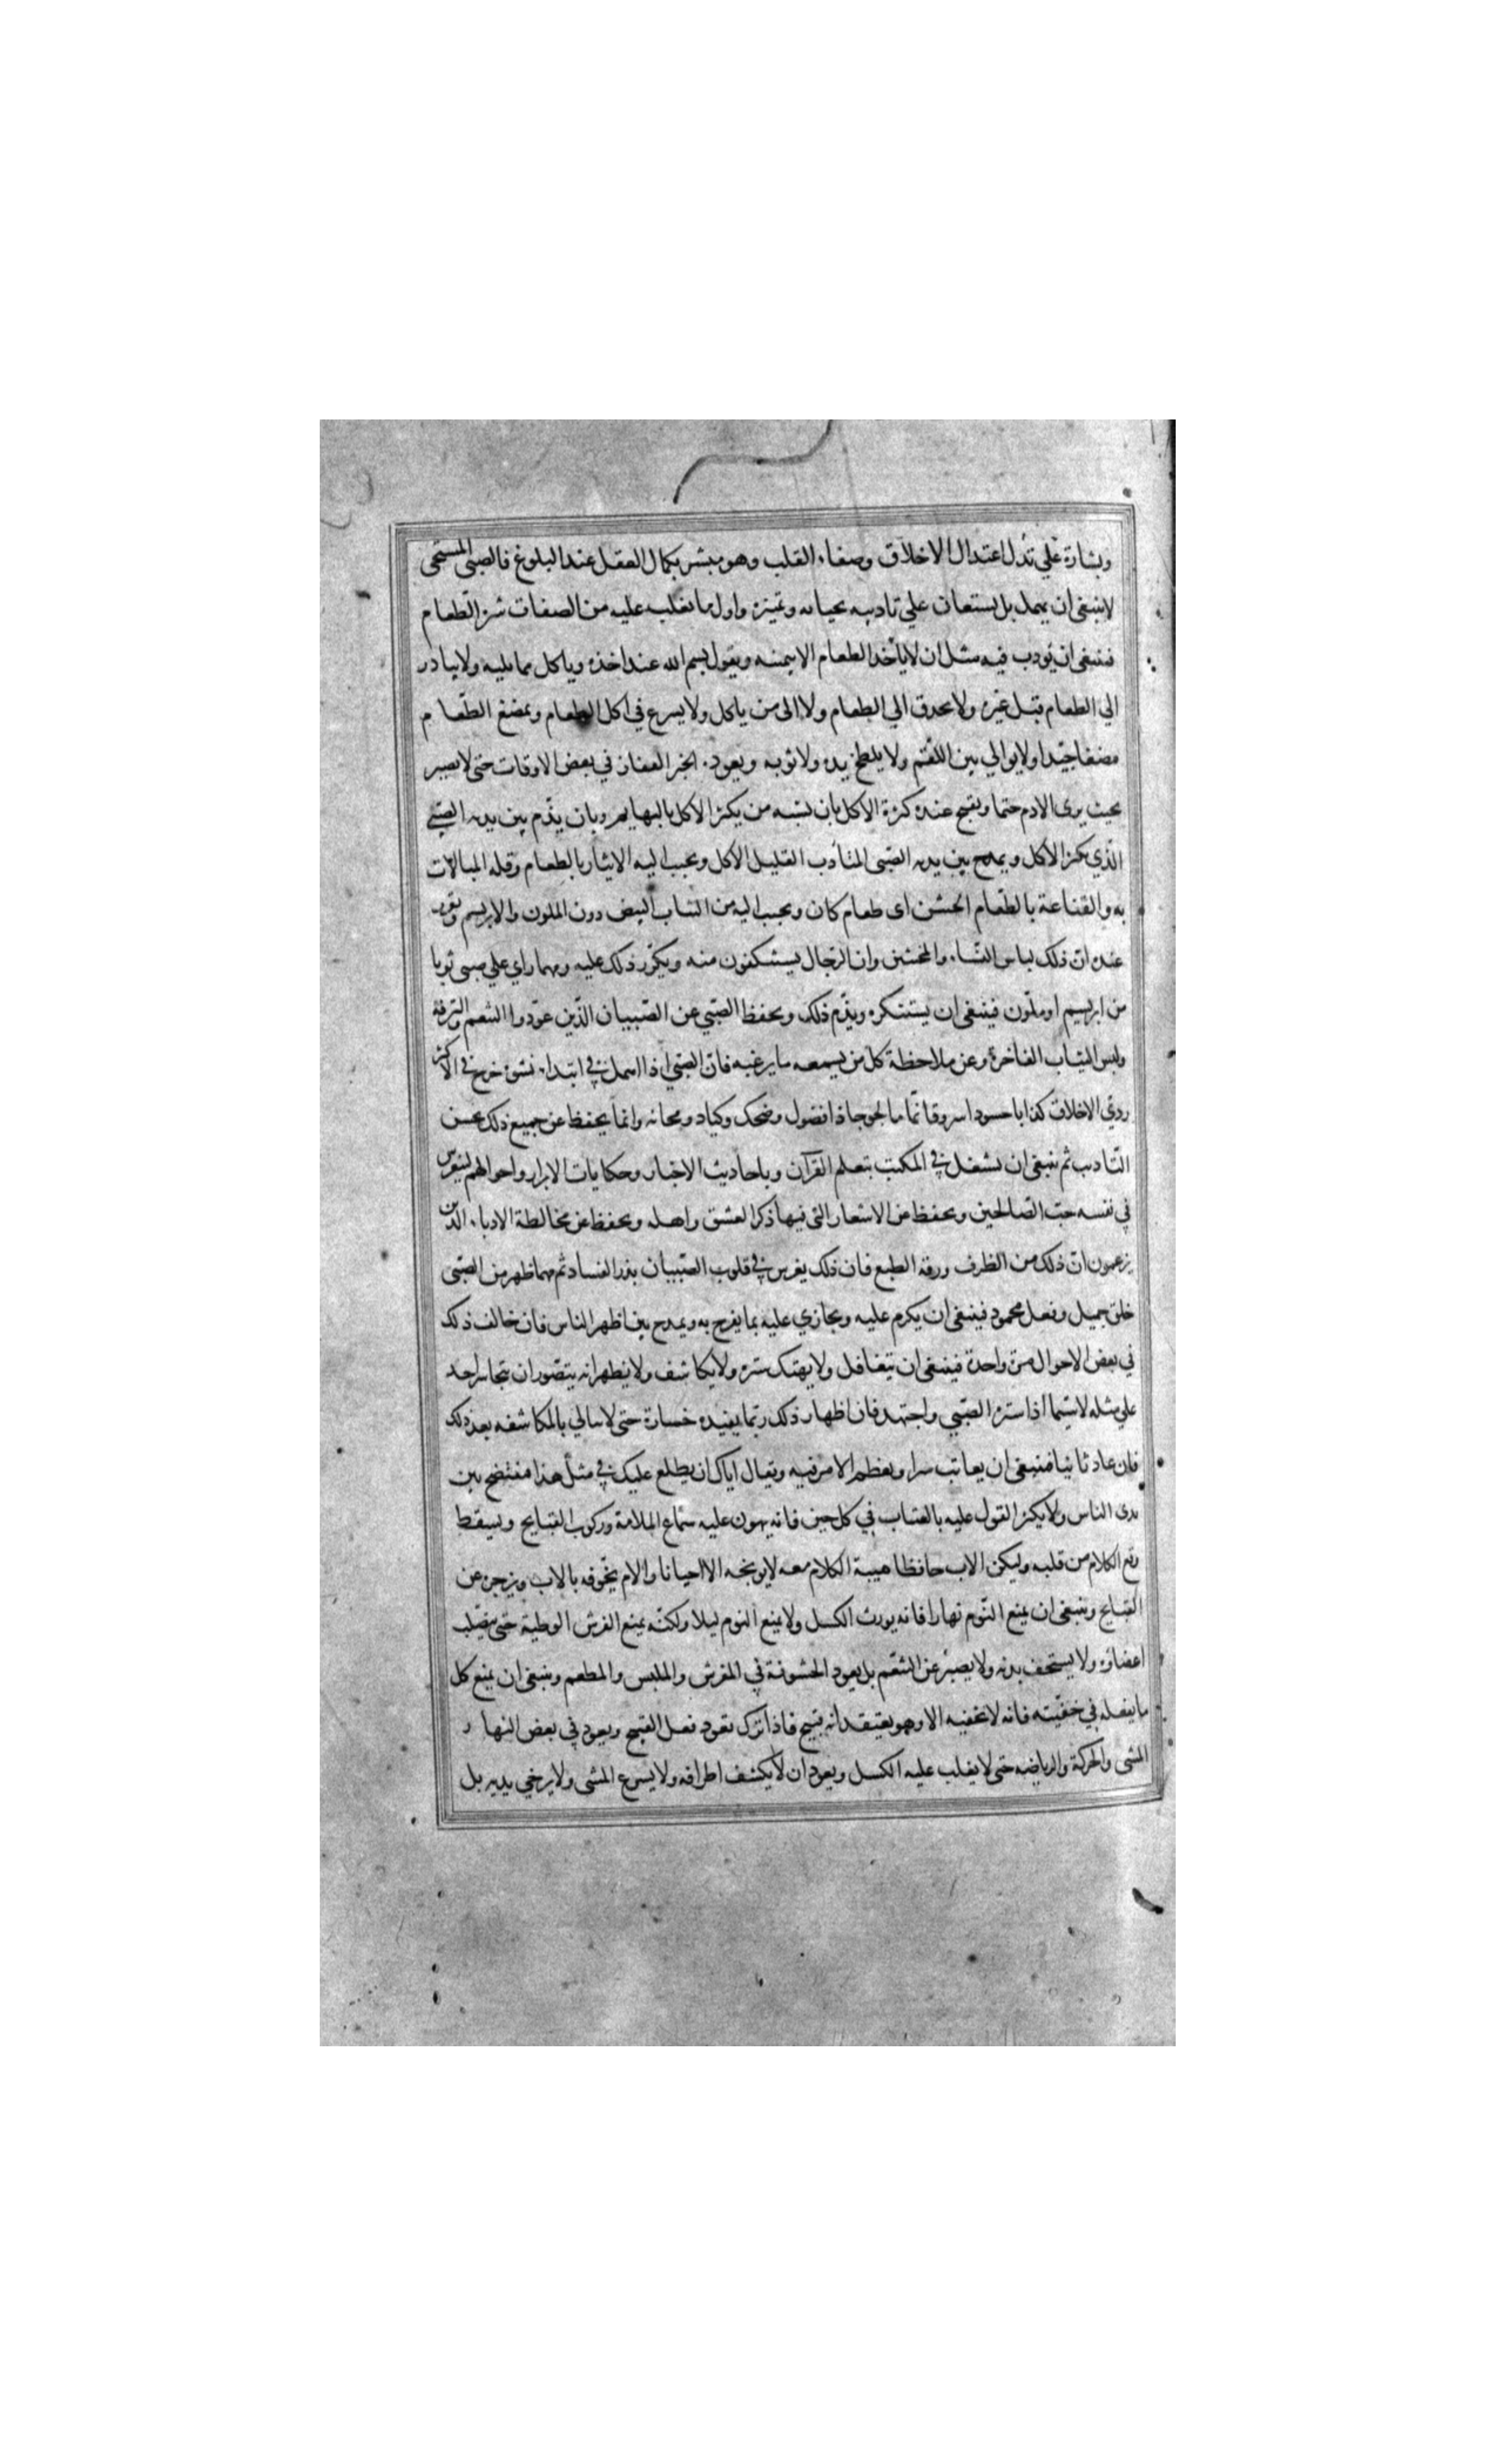 وبشارة علي تدل اعتدال الاخلاق وصفاء القلب وهو مبشر بكمال العقل عند البلوغ فالصبي المستحى
لاينبغى ان يهمل بل يستعان علي تاديبه بحيائه وتميزه واول ما يغلب عليه من الصفات شره الطعام
فينبغى ان يؤدب فيه مثل ان لايأخذ الطعام الا بيمينه ويقول بسم الله عند اخذه وياكل مما يليه ولايبادر
الي الطعام قبل غيره ولا يحدق الي الطعام ولا الى من ياكل ولا يسرع في اكل الطعام ويمضغ الطعام
مضغا جيدا ولايوالي بين اللقم ولا يلطخ يده ولاثوبه ويعود الخبز القفار في بعض الاوقات حتى لايصير
بحيث يرى الادم حتما ويقبح عنده كثرة الاكل بان يشبه من يكثر الاكل بالبهايم وبان يذم بين يديه الصبي
الذي يكثر الاكل ويمدح بين يديه الصبى المتأدب القليل الاكل ويحبب اليه الايثار بالطعام وقله المبالات
به والقناعة بالطعام الخشن اى طعام كان ويحبب اليه من الثياب البيض دون الملون والابريسم ويقرر
عنده ان ذلك لباس النساء والمخنثين وان الرجال يستنكفون منه ويكرر ذلك عليه ومهما راي علي صبى ثوبا
من ابريسم او ملون فينبغى ان يستنكره ويذم ذلك ويحفظ الصبي عن الصبيان الذين عودوا التنعم والترفة
ولبس الثياب الفاخرة وعن ملاحظة كل من يسمعه ما يرغبه فان الصبي اذا اهمل في ابتداء نشوه خرج في الاكثر
ردئ الاخلاق كذابا حسودا سروقا نماما لجوجا ذا فضول وضحك وكياد ومجانه وانما يحفظ عن جميع ذلك بحسن
التاديب ثم ينبغى ان يشغل في المكتب بتعلم القرآن وباحاديث الاخبار وحكايات الابرار واحوالهم لينغرس
في نفسه حب الصالحين ويحفظ عن الاشعار التى فيها ذكر العشق واهله ويحفظ عن مخالطة الادباء الذين
يزعمون ان ذلك من الظرف ورقة الطبع فان ذلك يغرس في قلوب الصبيان بذر الفساد ثم مهما ظهر من الصبى
خلق جميل وفعل محمود فينبغى ان يكرم عليه ويجازي عليه بما يفرح به ويمدح بين اظهر الناس فان خالف ذلك
في بعض الاحوال مرة واحدة فينبغى ان يتغافل ولايهتك ستره ولايكاشف ولايظهر انه يتصور ان يتجاسر احد
علي مثله لاسيما اذا ستره الصبي واجتهد فان اظهار ذلك ربما يفيده خسارة حتى لايبالي بالمكاشفه بعد ذلك
فان عاد ثانيا فينبغى ان يعاتب سرا ويعظم الامر فيه ويقال اياك ان يطلع عليك في مثل هذا فتفتضح بين
يدى الناس ولا يكثر القول عليه بالعتاب في كل حين فانه يهون عليه سماع الملامة وركوب القبايح ويسقط
وقع الكلام من قلبه وليكن الاب حافظا هيبة الكلام معه لايوبخه الا احيانا والام تخوفه بالاب ويزجره عن
القبايح وينبغى ان يمنع النوم نهارا فانه يورث الكسل ولا يمنع النوم ليلا ولكنه يمنع الفرش الوطية حتى يتصلب
اعضاؤه ولا يستخف بدنه ولا يصبر عن التنعم بل يعود الخشونة في المفرش والملبس والمطعم وينبغى ان يمنع كل
ما يفعله في خفيته فانه لايخفيه الا وهو يعتقد انه قبيح فاذا ترك تعود فعل القبيح ويعود في بعض النهار
المشى والحركة والرياضه حتى لايغلب عليه الكسل ويعود ان لايكشف اطرافه ولا يسرع المشى ولا يرخي يديه بل